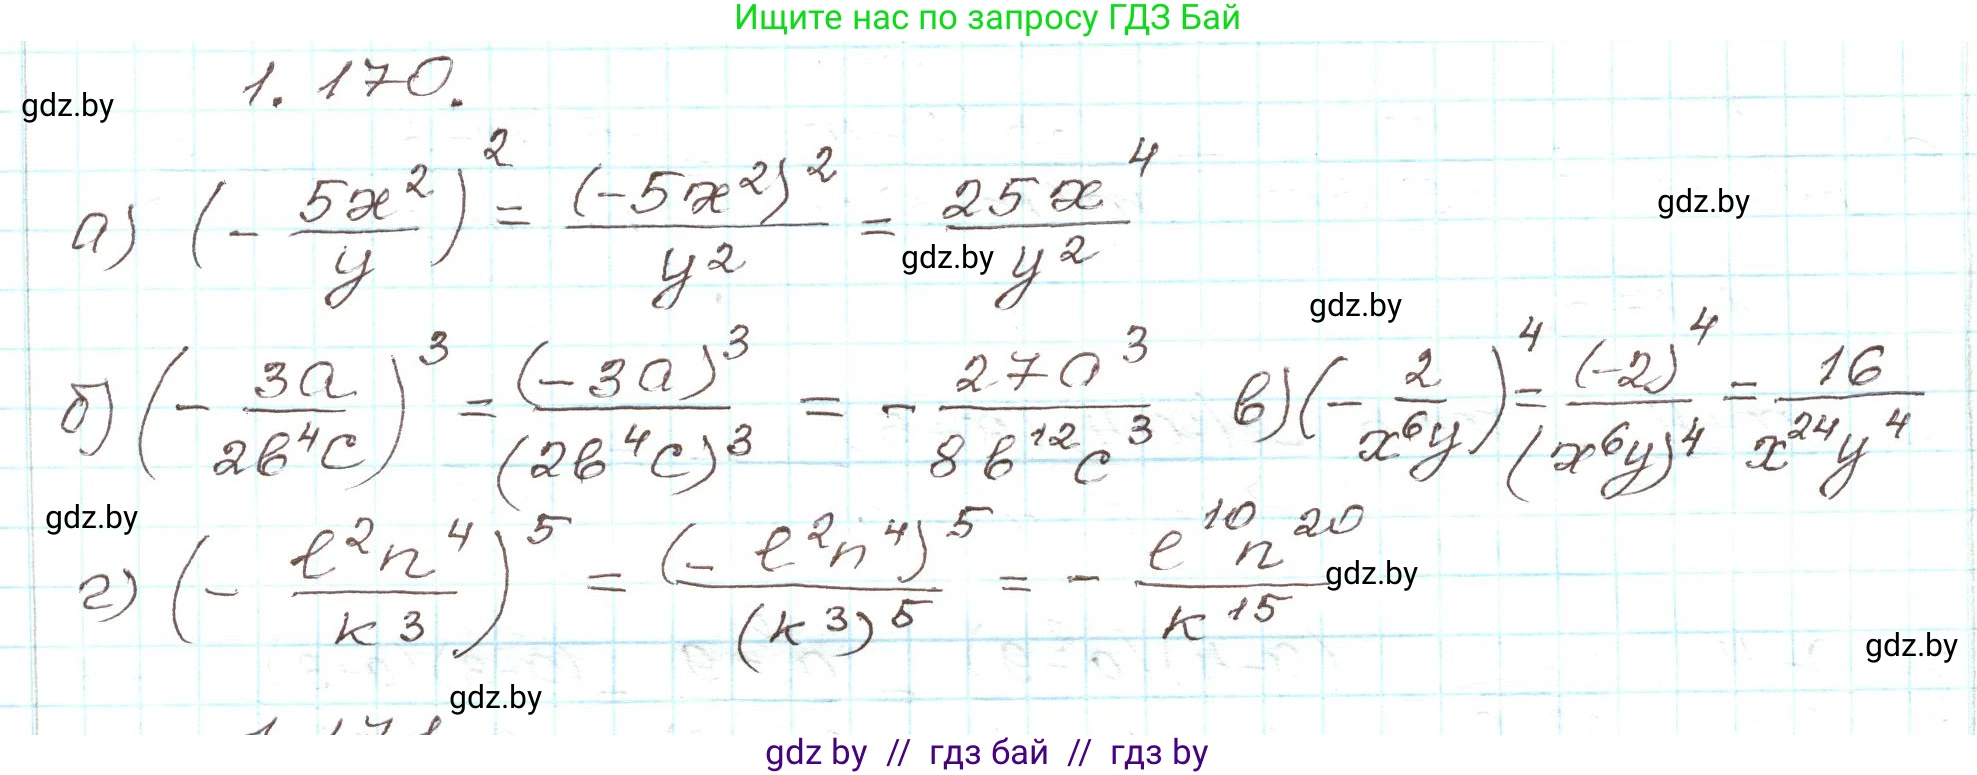 Ищите нас по запросу ГДЗ Бай
1.170.
gdz.by
а) (- 5x²/y)² = (-5x²)²/y² = 25x⁴/y²
gdz.by
gdz.by
gdz.by
б) (- 3a/2b⁴c)³ = (-3a)³/(2b⁴c)³ = - 27a³/8b¹²c³ в) (- 2/x⁶y)⁴ = (-2)⁴/(x⁶y)⁴ = 16/x²⁴y⁴
gdz.by
г) (- l²n⁴/k³)⁵ = (- l²n⁴)⁵/(k³)⁵ = - l¹⁰n²⁰/k¹⁵
gdz.by
gdz.by
gdz.by
1.171
gdz by // гдз бай // гдз by